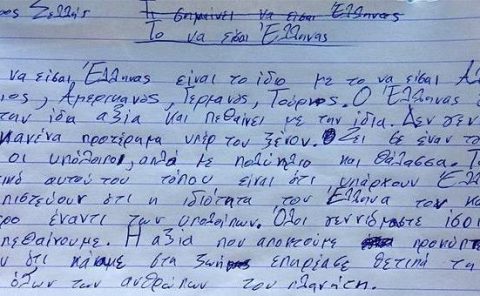 ρος Ζελλής Τι σημαίνει να είσαι Έλληνας
Το να είσαι Έλληνας
να είσαι Έλληνας είναι το ίδιο με το να είσαι
Αμερικανός, Γερμανός, Τούρκος. Ο Έλληνας
την ίδια αξία και πεθαίνει με την ίδια. Δεν
κανένα προτέρημα υπέρ του ξένου. Ζει σε έναν
οι υπόλοιποι, απλά με περισσότερο ήλιο και θάλασσα.
αυτού του τόπου είναι ότι υπάρχουν
πιστεύουν ότι η ιδιότητα του Έλληνα τον
έναντι των υπολοίπων. Όλοι γεννιόμαστε ίσοι
πεθαίνουμε. Η αξία που αποκτούμε
ότι κάναμε στη ζωή επηρέασε θετικά τη
όλων των ανθρώπων του πλανήτη.